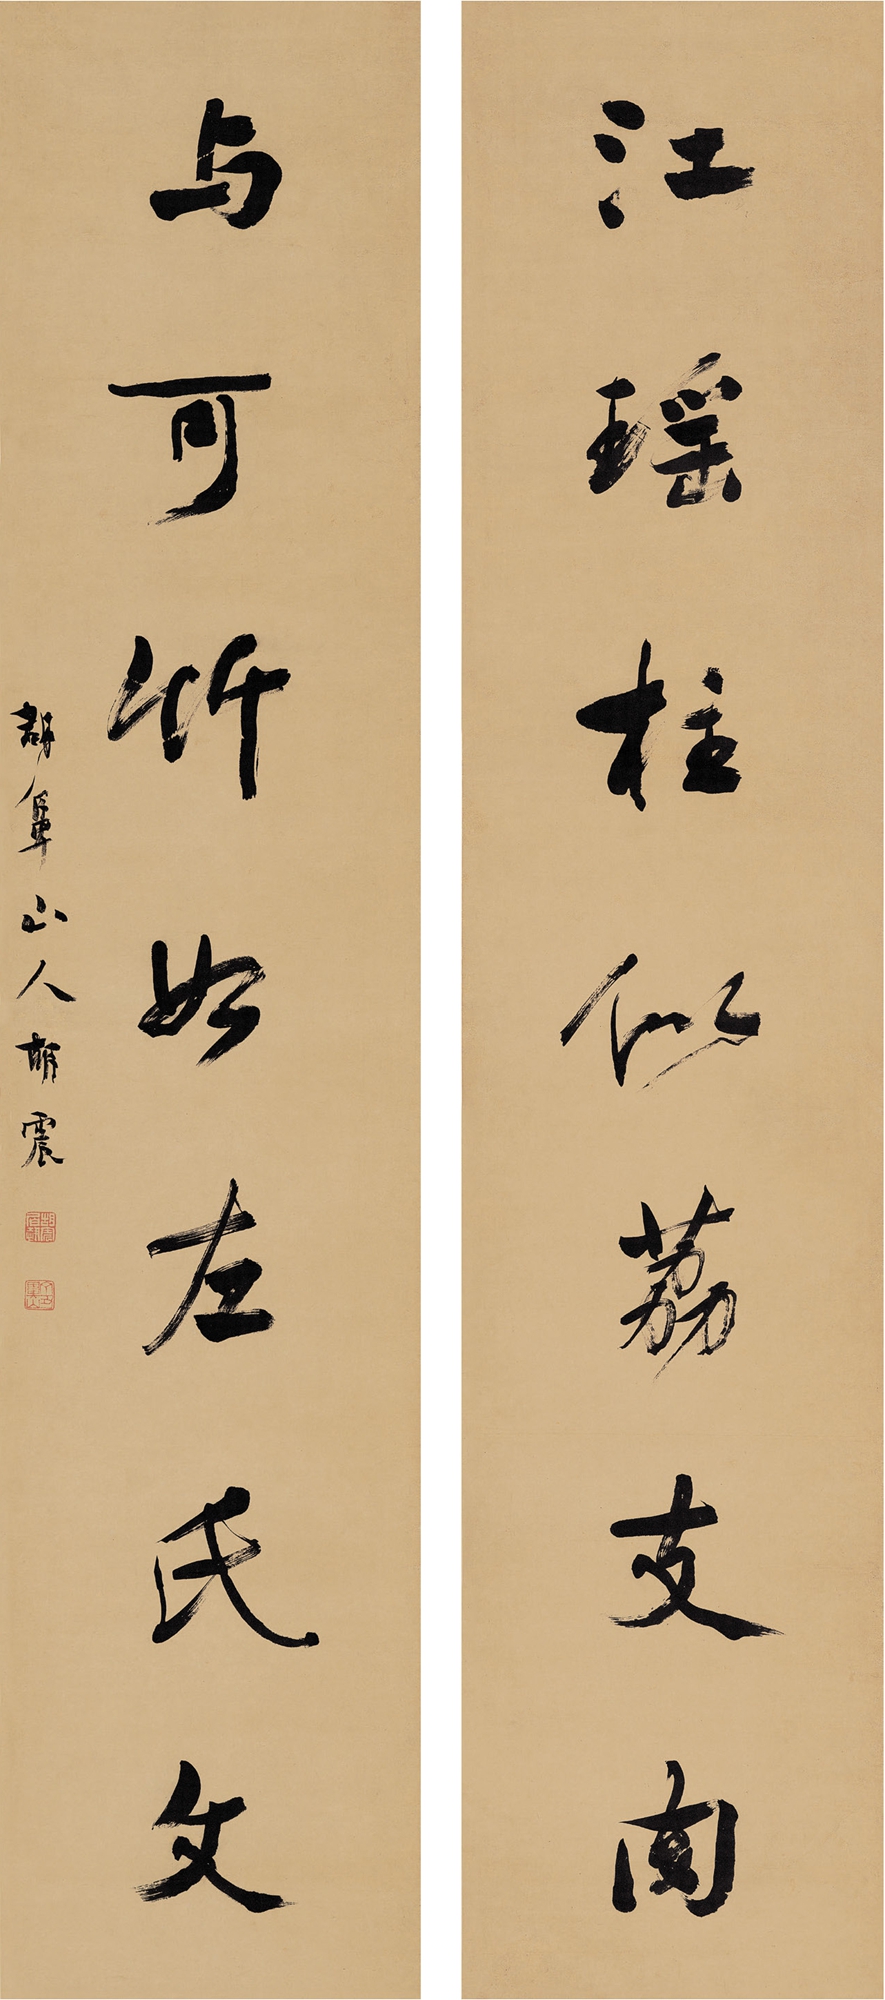 江瑶柱似荔支肉
与可竹如左氏文
胡鼻山人胡震